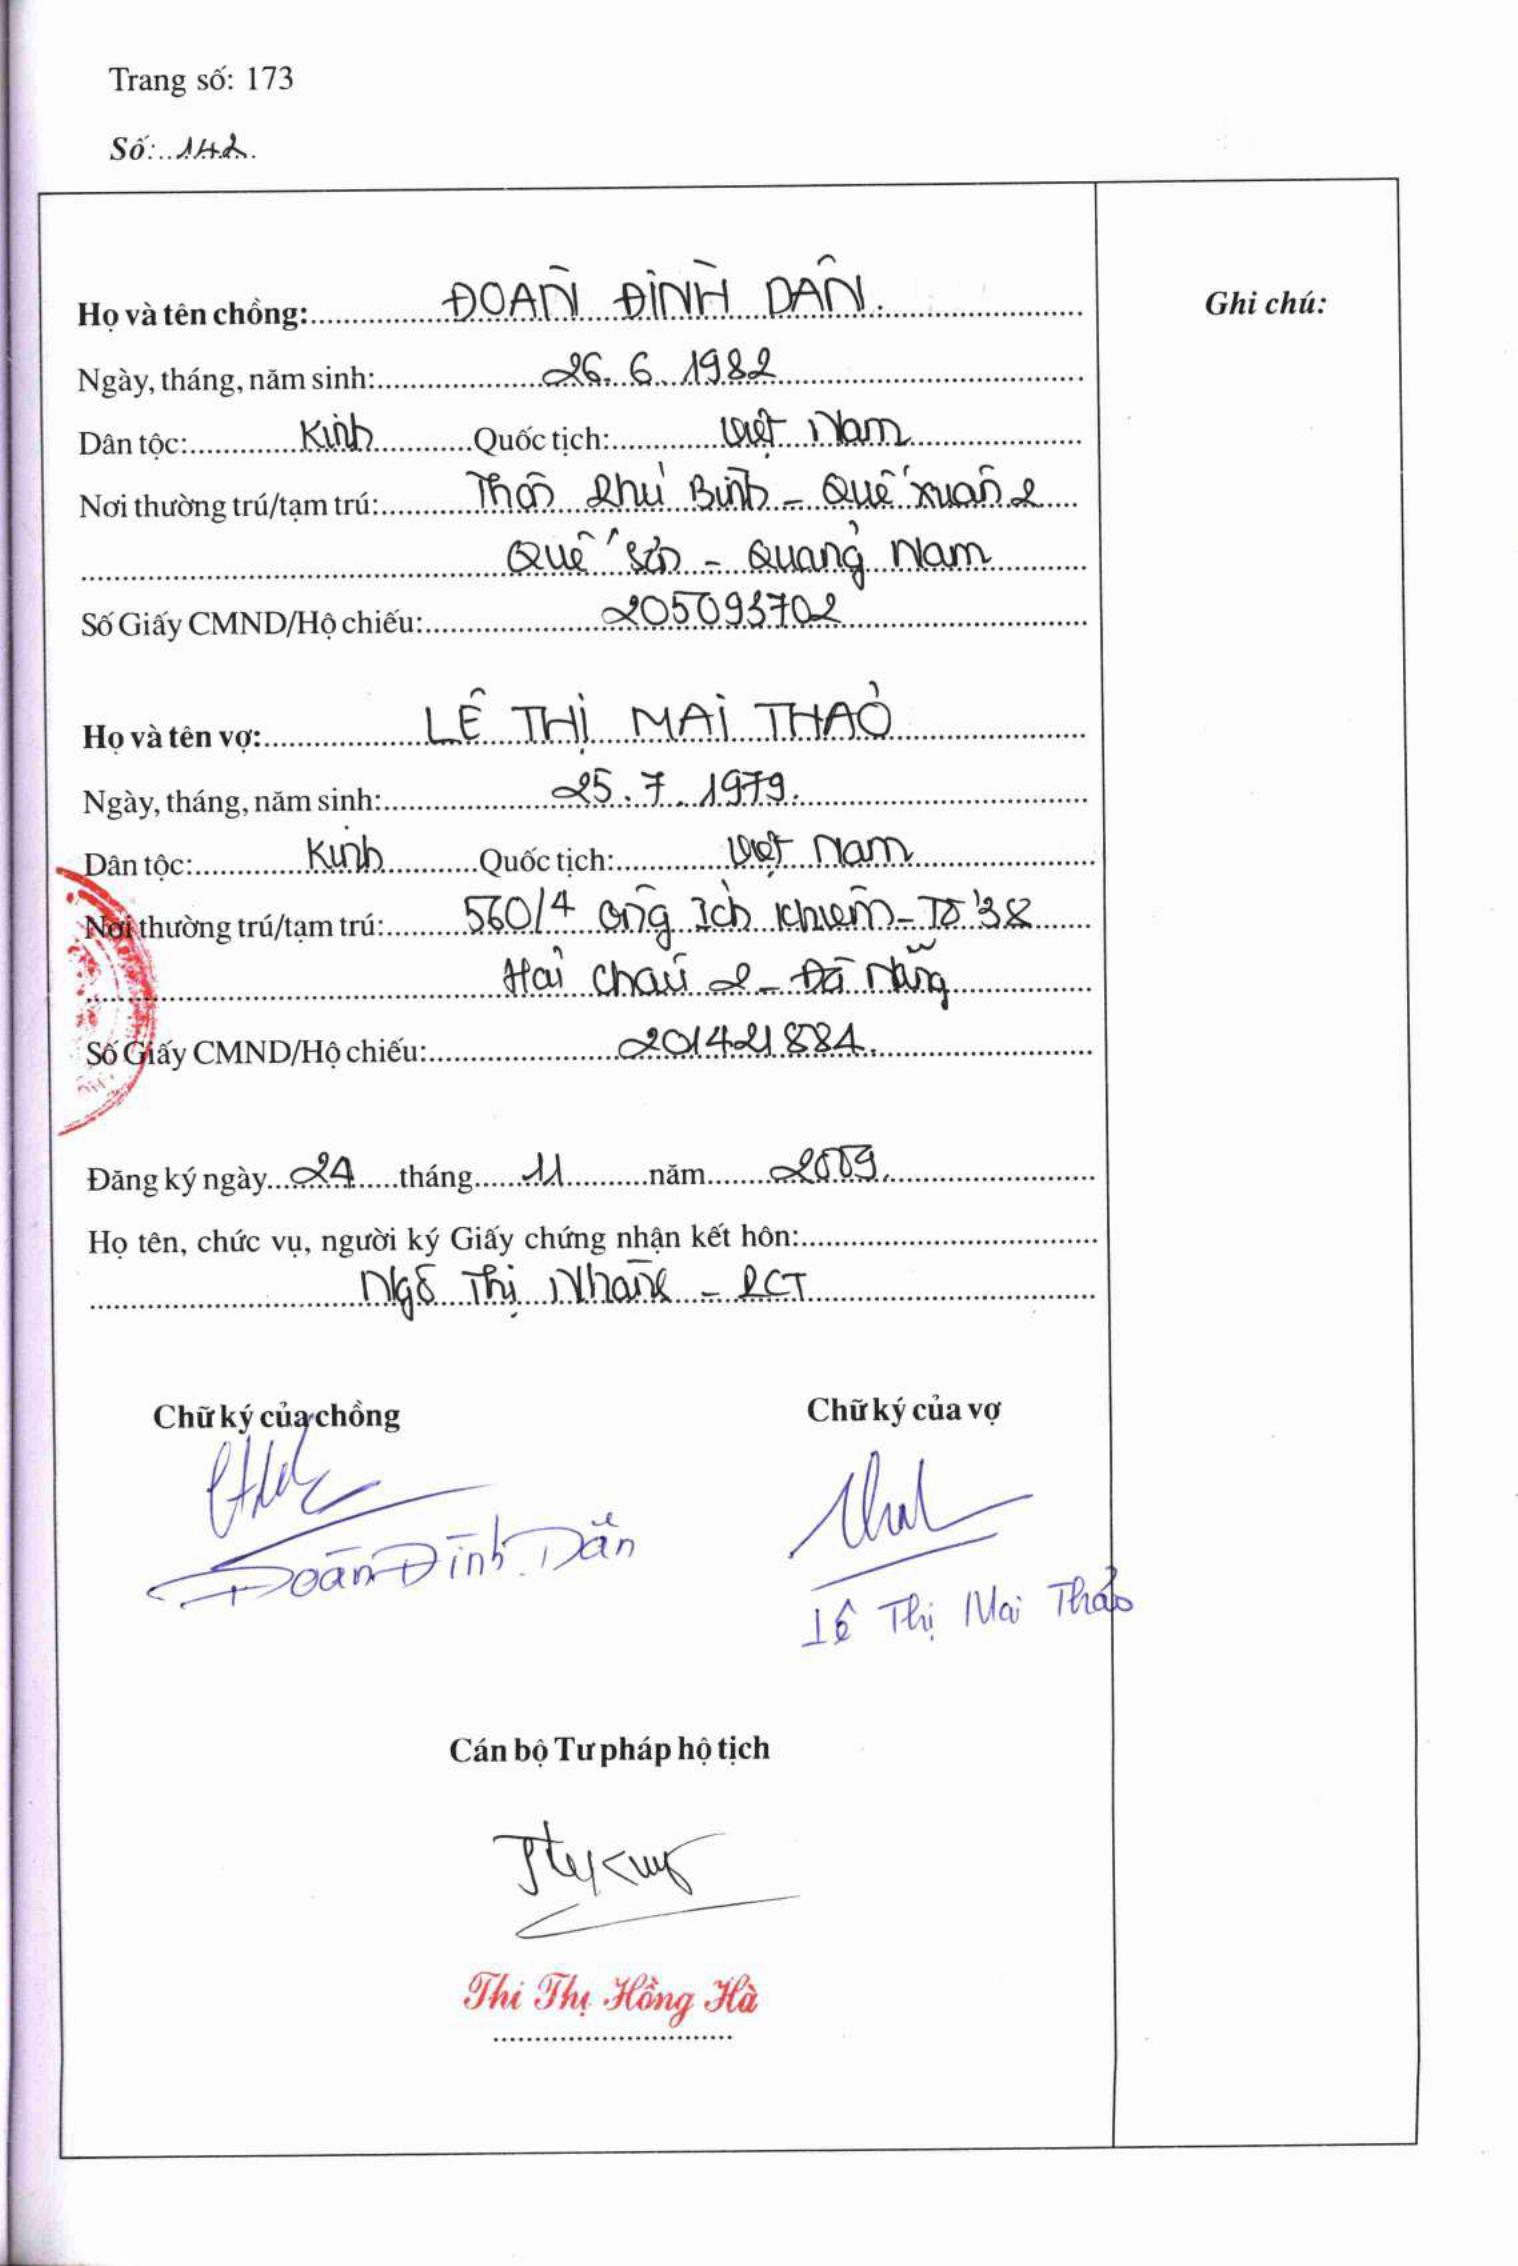 Trang số: 173
Số: 142
Họ và tên chồng: ĐOÀN ĐÌNH DÂN
Ghi chú:
Ngày, tháng, năm sinh: 26. 6. 1982
Dân tộc: Kinh Quốc tịch: Việt Nam
Nơi thường trú/tạm trú: Thôn Phú Bình - Quế Xuân 2
Quế Sơn - Quảng Nam
Số Giấy CMND/Hộ chiếu: 205093702
Họ và tên vợ: LÊ THỊ MAI THẢO
Ngày, tháng, năm sinh: 25. 7. 1979.
Dân tộc: Kinh Quốc tịch: Việt Nam
Nơi thường trú/tạm trú: 560/4 Ông Ích Khiêm - Tổ 38
Hải Châu 2 - Đà Nẵng
Số Giấy CMND/Hộ chiếu: 201421884.
Đăng ký ngày 24 tháng 11 năm 2009.
Họ tên, chức vụ, người ký Giấy chứng nhận kết hôn:
Ngô Thị - PCT
Chữ ký của chồng Chữ ký của vợ
Đoàn Đình Dân
Lê Thị Mai Thảo
Cán bộ Tư pháp hộ tịch
Thi Thị Hồng Hà